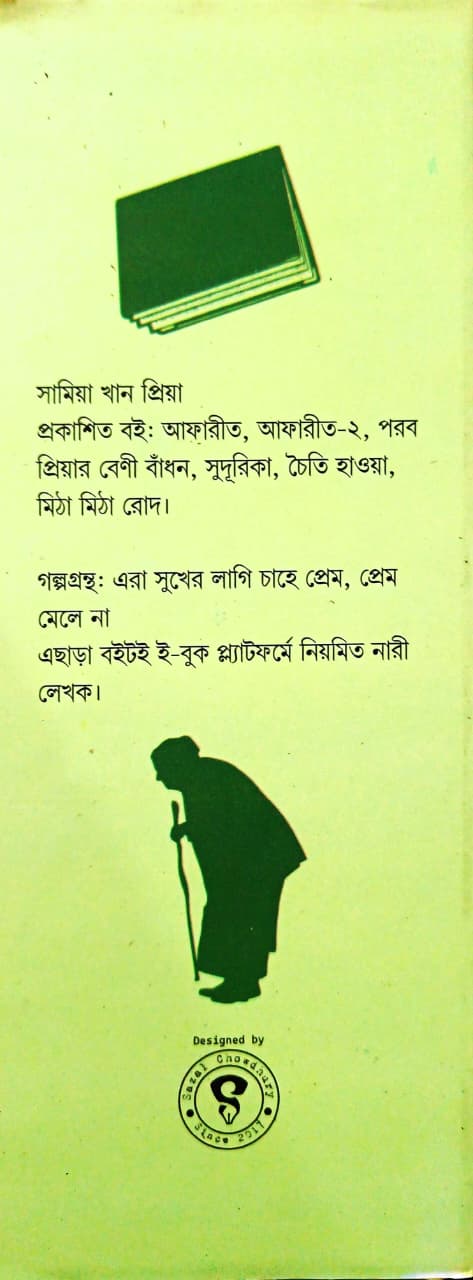 সামিয়া খান প্রিয়া
প্রকাশিত বই: আফারীত, আফারীত-২, পরব
প্রিয়ার বেণী বাঁধন, সুদূরিকা, চৈতি হাওয়া,
মিঠা মিঠা রোদ।
গল্পগ্রন্থ: এরা সুখের লাগি চাহে প্রেম, প্রেম
মেলে না
এছাড়া বইটই ই-বুক প্ল্যাটফর্মে নিয়মিত নারী
লেখক।
Designed by
Sazal Chowdhury
Since 2017